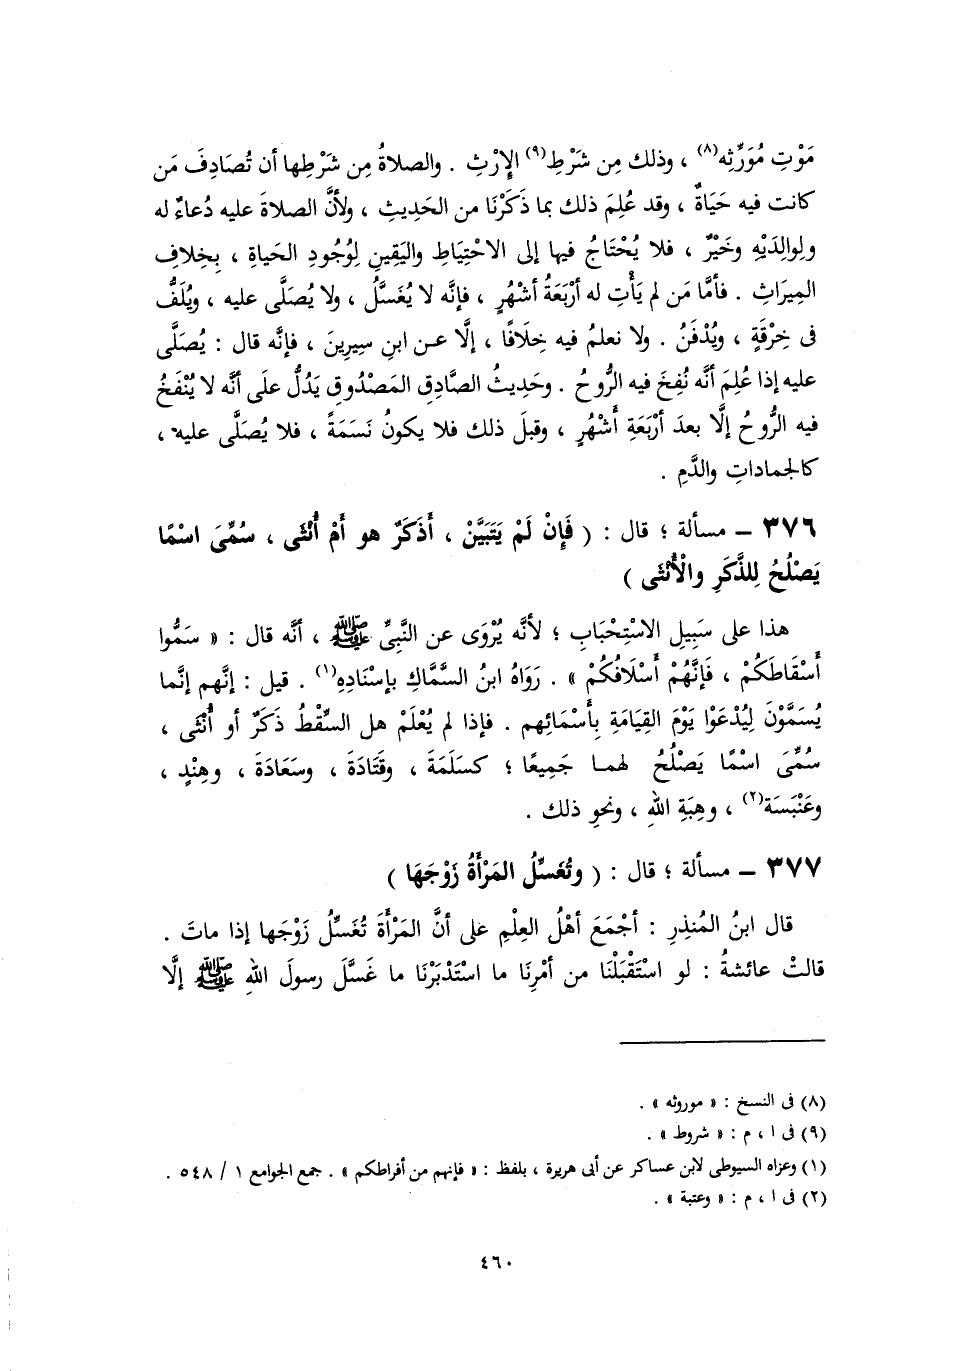 مَوْتِ مُوَرِّثِه(٨) ، وذلك مِن شَرْطِ(٩) الإِرْثِ . والصلاةُ مِن شَرْطِها أن تُصَادِفَ مَن
كانت فيه حَيَاةٌ ، وقد عُلِمَ ذلك بما ذَكَرْنَا من الحَدِيثِ ، ولأنَّ الصلاةَ عليه دُعاءٌ له
ولِوالِدَيْهِ وخَيْرٌ ، فلا يُحْتَاجُ فيها إلى الاحْتِيَاطِ واليَقِينِ لِوُجُودِ الحَياةِ ، بِخِلافِ
المِيرَاثِ . فأمَّا مَن لم يَأْتِ له أرْبَعَةُ أشْهُرٍ ، فإنَّه لا يُغَسَّلُ ، ولا يُصَلَّى عليه ، ويُلَفُّ
فى خِرْقَةٍ ، ويُدْفَنُ . ولا نعلمُ فيه خِلَافًا ، إلَّا عـن ابنِ سِيرِينَ ، فإنَّه قال : يُصَلَّى
عليه إذا عُلِمَ أنَّه نُفِخَ فيه الرُّوحُ . وحَدِيثُ الصَّادِقِ المَصْدُوقِ يَدُلُّ علَى أنَّه لا يُنْفَخُ
فيه الرُّوحُ إلَّا بعدَ أرْبَعَةِ أَشْهُرٍ ، وقبلَ ذلك فلا يكونُ نَسَمَةً ، فلا يُصَلَّى عليه ،
كالجماداتِ والدَّمِ .
٣٧٦ – مسألة ؛ قال : ( فَإِنْ لَمْ يَتَبَيَّنْ ، أَذَكَرٌ هو أمْ أُنْثَى ، سُمِّىَ اسْمًا
يَصْلُحُ لِلذَّكَرِ والْأُنْثَى )
هذا على سَبِيلِ الاسْتِحْبَابِ ؛ لأنَّه يُرْوَى عن النَّبِىِّ ﷺ ، أنَّه قال : « سَمُّوا
أَسْقَاطَكُمْ ، فَإِنَّهُمْ أَسْلَافُكُمْ » . رَوَاهُ ابنُ السَّمَّاكِ بإسْنَادِهِ(١) . قيل : إنَّهم إنَّما
يُسَمَّوْنَ لِيُدْعَوْا يَوْمَ القِيَامَةِ بِأَسْمَائِهم . فإذا لم يُعْلَمْ هل السِّقْطُ ذَكَرٌ أو أُنْثَى ،
سُمِّىَ اسْمًا يَصْلُحُ لهمـا جَمِيعًا ؛ كسَلَمَةَ ، وقَتَادَةَ ، وسَعَادَةَ ، وهِنْدٍ ،
وعَنْبَسَة(٢) ، وهِبَةِ اللهِ ، ونحوِ ذلك .
٣٧٧ – مسألة ؛ قال : ( وتُغَسِّلُ المَرْأَةُ زَوْجَهَا )
قال ابنُ المُنذِرِ : أجْمَعَ أهْلُ العِلْمِ على أنَّ المَرْأَةَ تُغَسِّلُ زَوْجَها إذا ماتَ .
قالتْ عائشةُ : لو اسْتَقْبَلْنَا من أمْرِنَا ما اسْتَدْبَرْنَا ما غَسَّلَ رسولَ اللهِ ﷺ إلَّا
(٨) فى النسخ : « موروثه » .
(٩) فى ا ، م : « شروط » .
(١) وعزاه السيوطى لابن عساكر عن أبى هريرة ، بلفظ : « فإنهم من أفراطكم » . جمع الجوامع ١ / ٥٤٨ .
(٢) فى ا ، م : « وعتبة » .
٤٦٠